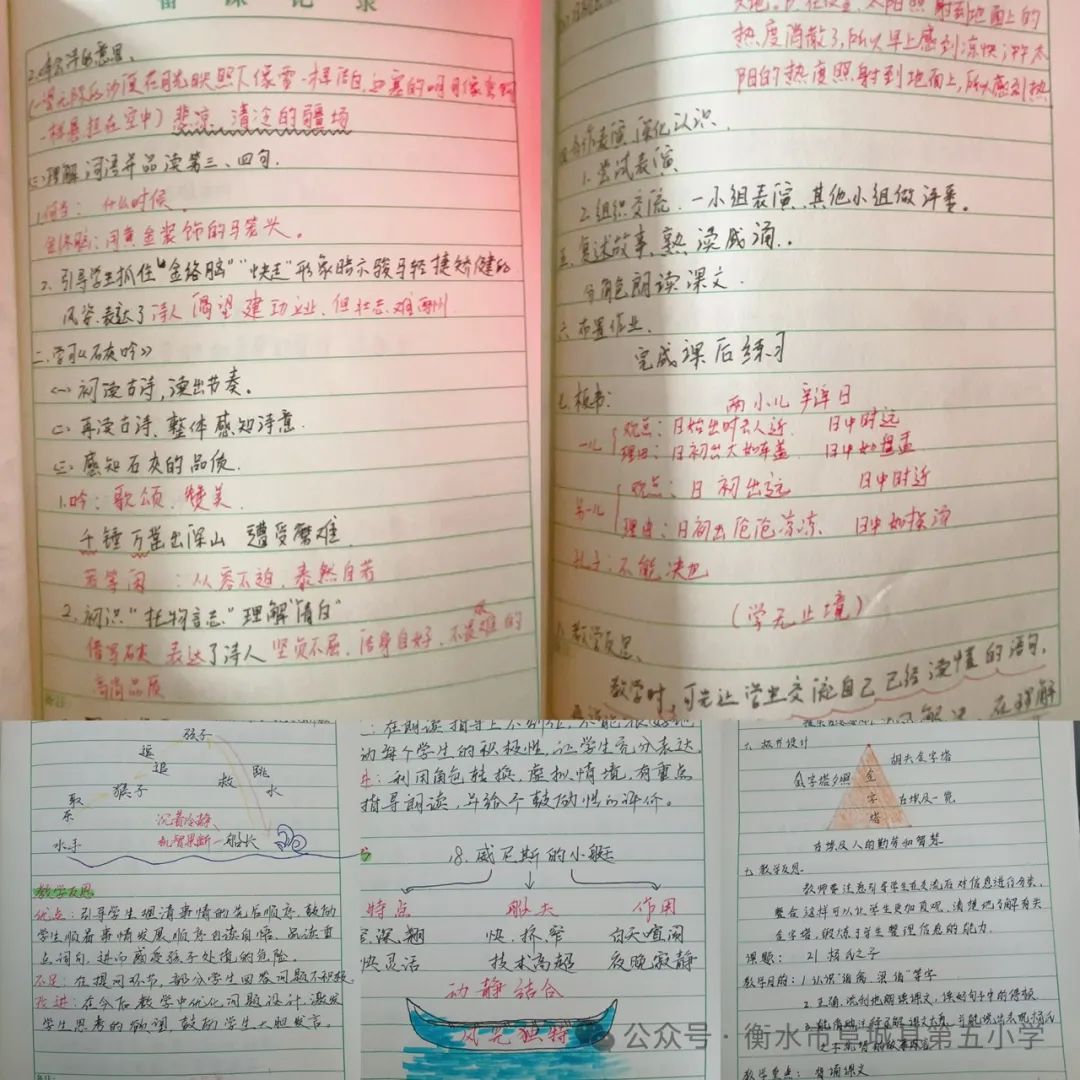 备课记录
2.体会诗的意思。
(一望无际的沙漠在月光映照下像雪一样洁白,边塞的明月像弯钩
一样悬挂在空中) 悲凉、清冷的疆场
(三)理解词语并品读第三、四句.
1.何当: 什么时候.
金络脑: 用黄金装饰的马笼头。
2. 引导学生抓住“金络脑”“快走”形象暗示骏马轻捷矫健的
风姿.表达了诗人渴望建功立业、但壮志难酬.
二.学习《石灰吟》
(一) 初读古诗,读出节奏。
(二) 再读古诗、整体感知诗意.
(三) 感知石灰的品质.
1.吟: 歌颂、赞美.
千锤万凿出深山 遭受磨难.
若等闲 : 从容不迫、泰然自若
2. 初识“托物言志”理解“清白”
借写石灰 表达了诗人坚贞不屈、洁身自好、不畏艰难的
高尚品质
太阳照射到地面上的
热度消散了,所以早上感到凉快;中午太
阳的热度照射到地面上,所以感到热
四.合作表演,深化认识.
1. 尝试表演
2.组织交流.一小组表演,其他小组做评委。
五.复述故事,熟读成诵..
分角色朗读课文.
六.布置作业.
完成课后练习
七.板书: 两小儿辩日
一儿 观点: 日始出时去人近. 日中时远
理由: 日初出大如车盖. 日中如盘盂
另一儿 观点: 日初出远 日中时近
理由: 日初出沧沧凉凉、 日中如探汤
孔子: 不能决也
(学无止境)
教学反思、
教学时,可先让学生交流自己已经读懂的语句,
在理解
孩子
逗
追
猴子
取
乐
水手
救
跳
水
船长
沉着冷静
机智果断
教学反思
优点: 引导学生理清事情的先后顺序,鼓励
学生顺着事情发展顺序自读自悟、品读重
点词句,进而感受孩子处境的危险。
不足: 在提问环节,部分学生回答问题不积极
改进: 在今后教学中优化问题设计,激发
学生思考的欲望,鼓励学生大胆发言。
: 在朗读指导上不到位,不能很好地
动每个学生的积极性,让学生充分表达.
: 利用角色转换,虚拟情境,有重点
指导朗读,并给个鼓励性的评价。
18. 威尼斯的小艇
特点 船夫 作用
深、翘 快、挤、窄 白天喧闹
快灵活 技术高超 夜晚寂静
动静结合
风光独特
六、板书设计
胡夫金字塔
金字塔夕照
金
字
塔
古埃及一览
古埃及人的勤劳和智慧
七、教学反思
教师要注意引导学生在交流后对信息进行分类,
整合.这样可以让学生更加直观、清楚地了解有关
金字塔,锻炼了学生整理信息的能力.
课题: 21 杨氏之子
教学目标: 1.认识“诣禽、梁诣”等字
2.正确、流利地朗读课文,读好句子中的停顿
教学重点: 背诵课文
公众号 · 衡水市阜城县第五小学